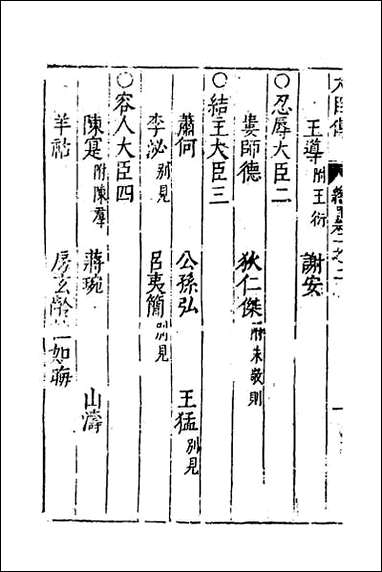 大臣傳 總目 卷之二
王導附王衍 謝安
○忍辱大臣二
婁師德 狄仁傑附朱敬則
○結主大臣三
蕭何 公孫弘 王猛別見
李泌別見 呂夷簡別見
○容人大臣四
陳寔附陳羣 蔣琬 山濤
羊祜 房玄齡 如晦